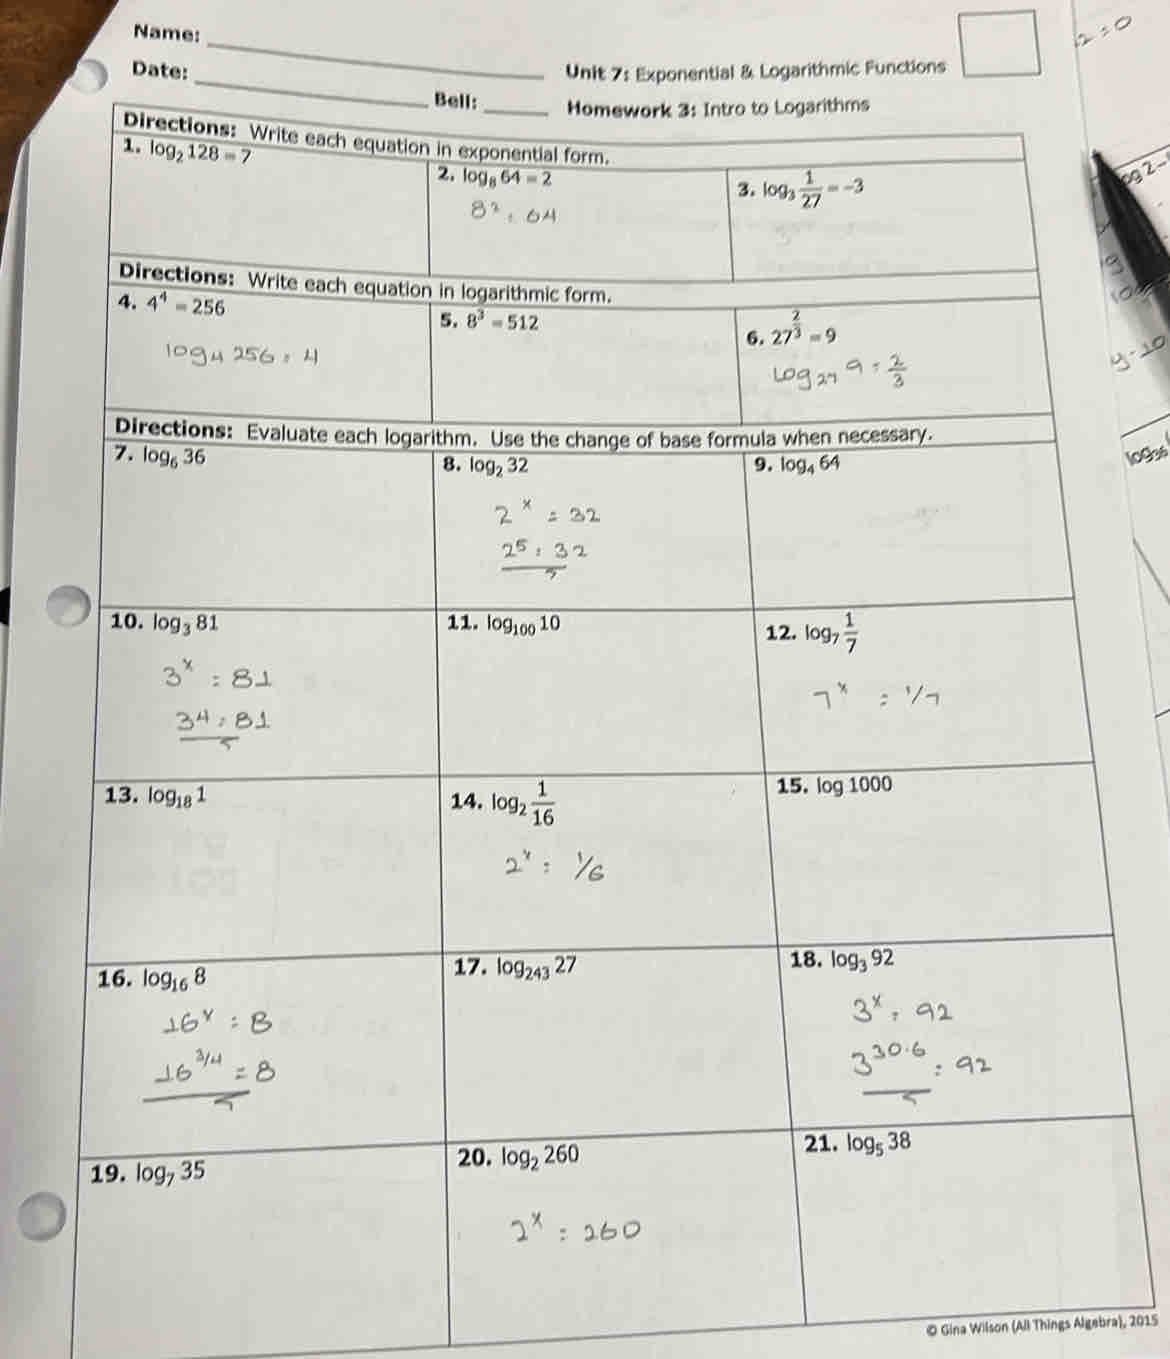 Name:
Date:
Bell:
Unit 7: Exponential & Logarithmic Functions
Homework 3: Intro to Logarithms
2 = 0
Directions: Write each equation in exponential form.
1. log₂ 128 = 7
2. log₈ 64 = 2
8² = 64
3. log₃ 1/27 = -3
Directions: Write each equation in logarithmic form.
4. 4⁴ = 256
log₄ 256 = 4
5. 8³ = 512
6. 27^(2/3) = 9
Log₂₇ 9 = 2/3
Directions: Evaluate each logarithm. Use the change of base formula when necessary.
7. log₆ 36
8. log₂ 32
2ˣ = 32
2⁵ = 32
9. log₄ 64
10. log₃ 81
3ˣ = 81
3⁴ = 81
11. log₁₀₀ 10
12. log₇ 1/7
7ˣ = 1/7
13. log₁₈ 1
14. log₂ 1/16
2ˣ = 1/6
15. log 1000
16. log₁₆ 8
16ˣ = 8
16^(3/4) = 8
17. log₂₄₃ 27
18. log₃ 92
3ˣ = 92
3^30.6 = 92
19. log₇ 35
20. log₂ 260
2ˣ = 260
21. log₅ 38
© Gina Wilson (All Things Algebra), 2015